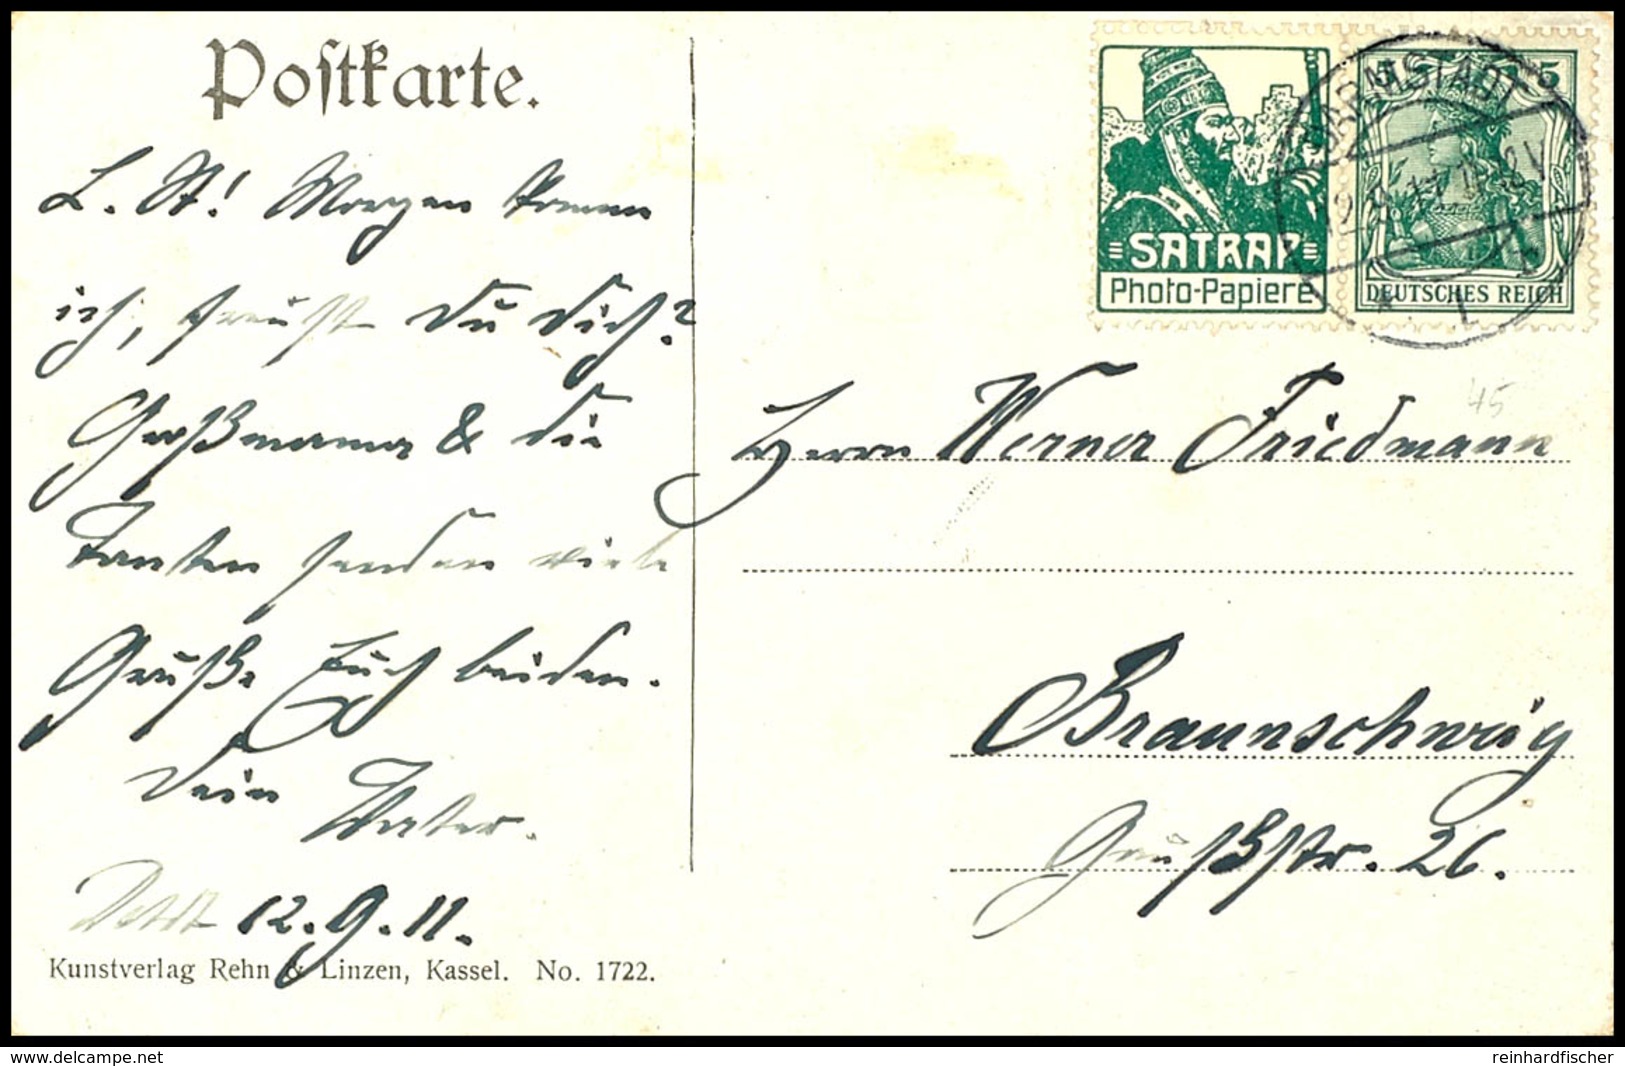 Postkarte.
L. W! Morgen komme
ich, freust Du Dich?
Großmama & die
Tanten senden viele
Grüße Euch beiden.
Dein Vater.
12.9.11.
Kunstverlag Rehn & Linzen, Kassel. No. 1722.
SATRAP
Photo-Papiere
5
DEUTSCHES REICH
DARMSTADT
12.9.11.
* 1
45
Herrn Werner Friedmann
Braunschweig
Gaußstr. 26.
delcampe.net
reinhardfischer